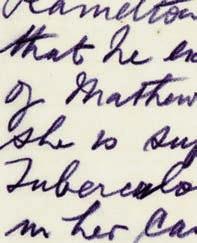 Hamilton
that he en
of Mathew
she is sup
Tuberculo
in her cas